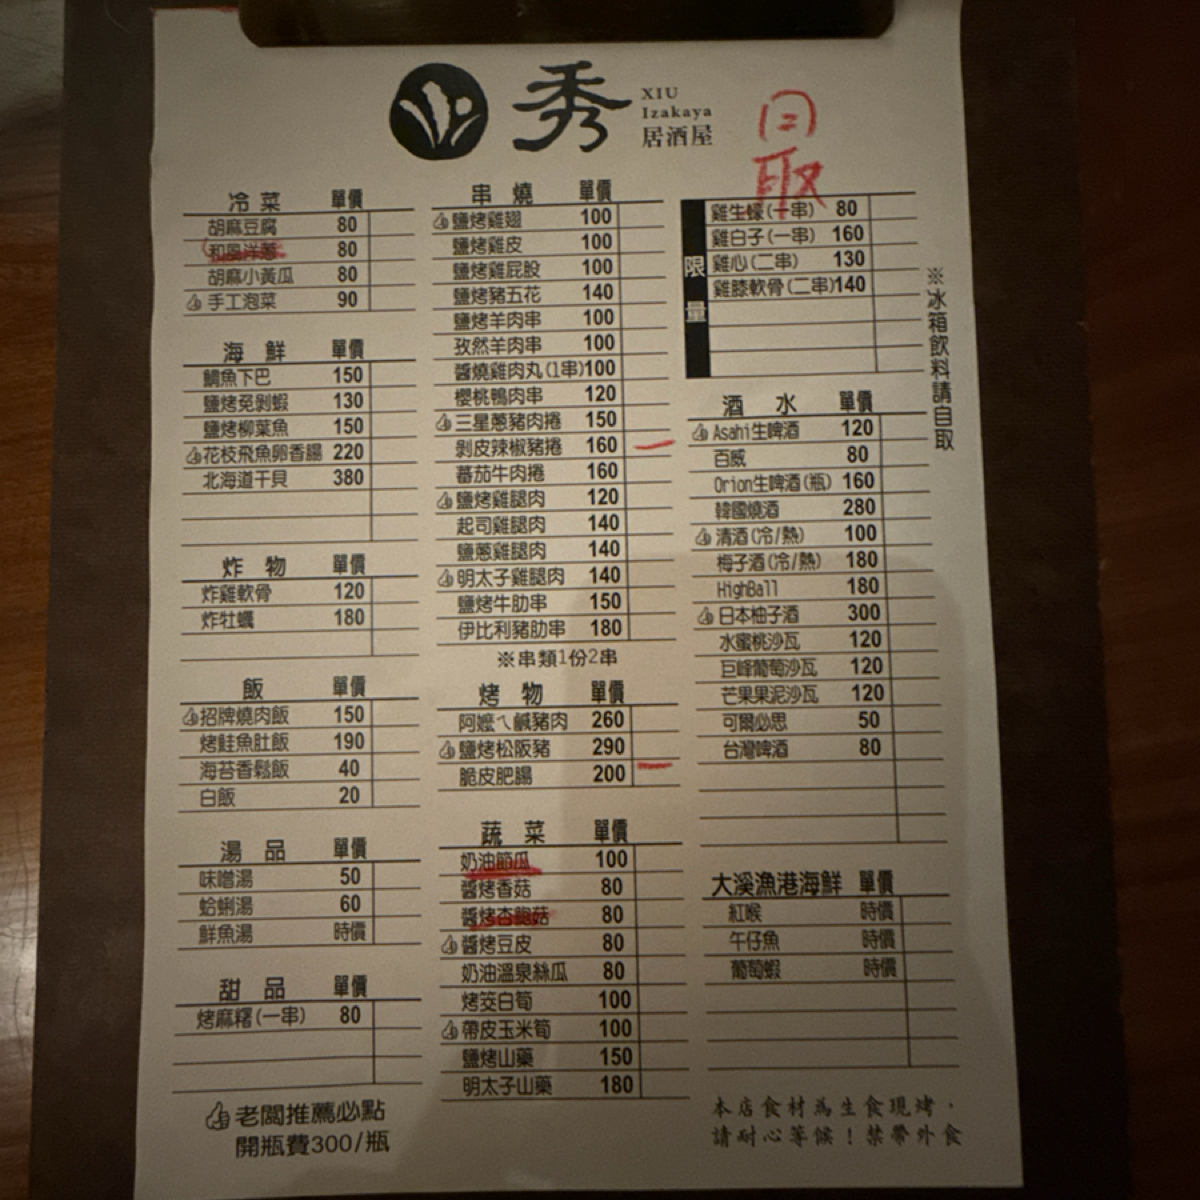 秀
XIU
Izakaya
居酒屋
冷菜 單價
胡麻豆腐 80
和風洋蔥 80
胡麻小黃瓜 80
手工泡菜 90
海鮮 單價
鯛魚下巴 150
鹽烤剝蝦 130
鹽烤柳葉魚 150
花枝飛魚卵香腸 220
北海道干貝 380
炸物 單價
炸雞軟骨 120
炸牡蠣 180
飯 單價
招牌燒肉飯 150
烤鮭魚肚飯 190
海苔香鬆飯 40
白飯 20
湯品 單價
味噌湯 50
蛤蜊湯 60
鮮魚湯 時價
甜品 單價
烤麻糬(一串) 80
老闆推薦必點
開瓶費300/瓶
串燒 單價
鹽烤雞翅 100
鹽烤雞皮 100
鹽烤雞屁股 100
鹽烤豬五花 140
鹽烤羊肉串 100
孜然羊肉串 100
醬燒雞肉丸(1串)100
櫻桃鴨肉串 120
三星蔥豬肉捲 150
剝皮辣椒豬捲 160
蕃茄牛肉捲 160
鹽烤雞腿肉 120
起司雞腿肉 140
鹽蔥雞腿肉 140
明太子雞腿肉 140
鹽烤牛肋串 150
伊比利豬肋串 180
※串類1份2串
烤物 單價
阿嬤ㄟ鹹豬肉 260
鹽烤松阪豬 290
脆皮肥腸 200
蔬菜 單價
奶油節瓜 100
醬烤香菇 80
醬烤杏鮑菇 80
醬烤豆皮 80
奶油溫泉絲瓜 80
烤筊白筍 100
帶皮玉米筍 100
鹽烤山藥 150
明太子山藥 180
限量
雞生蠔(一串) 80
雞白子(一串) 160
雞心(二串) 130
雞膝軟骨(二串)140
※冰箱飲料請自取
酒水 單價
Asahi生啤酒 120
百威 80
Orion生啤酒(瓶) 160
韓國燒酒 280
清酒(冷/熱) 100
梅子酒(冷/熱) 180
HighBall 180
日本柚子酒 300
水蜜桃沙瓦 120
巨峰葡萄沙瓦 120
芒果果泥沙瓦 120
可爾必思 50
台灣啤酒 80
大溪漁港海鮮 單價
紅喉 時價
午仔魚 時價
葡萄蝦 時價
本店食材為生食現烤，
請耐心等候！禁帶外食